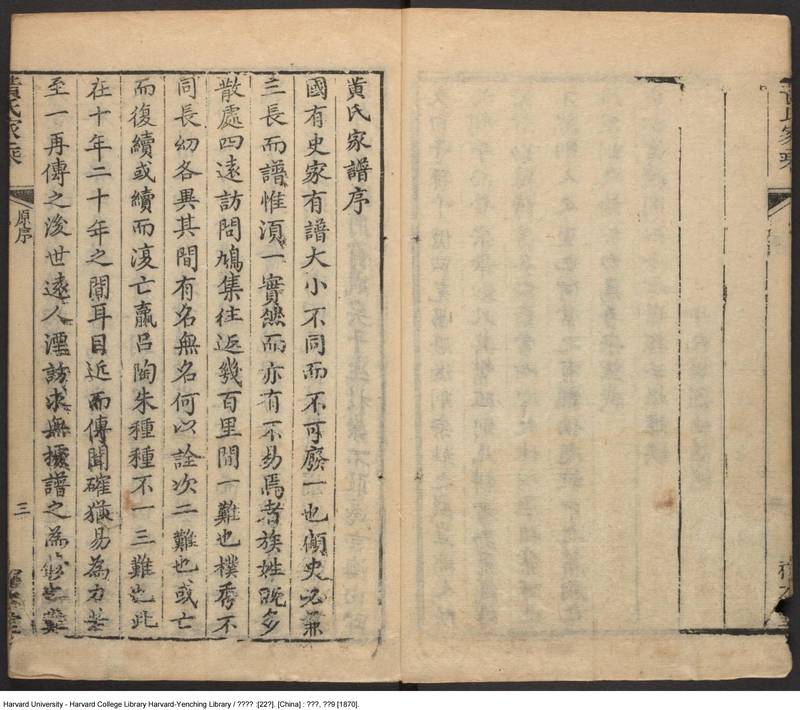 黃氏家譜序
國有史家有譜大小不同而不可廢一也傾史必兼
三長而譜惟湏一實然而亦有不易焉者族姓既多
散處四遠訪問鳩集往返幾百里間一難也樸秀不
同長幼各異其間有名無名何以詮次二難也或亡
而復續或續而復亡嬴呂陶朱種種不一三難也此
在十年二十年之間耳目近而傳聞確猶易為力若
至一再傳之後世遠人湮訪求無據譜之為
黃氏家乘
原序
三
Harvard University - Harvard College Library Harvard-Yenching Library / ???? :[22?]. [China] : ???, ??9 [1870].